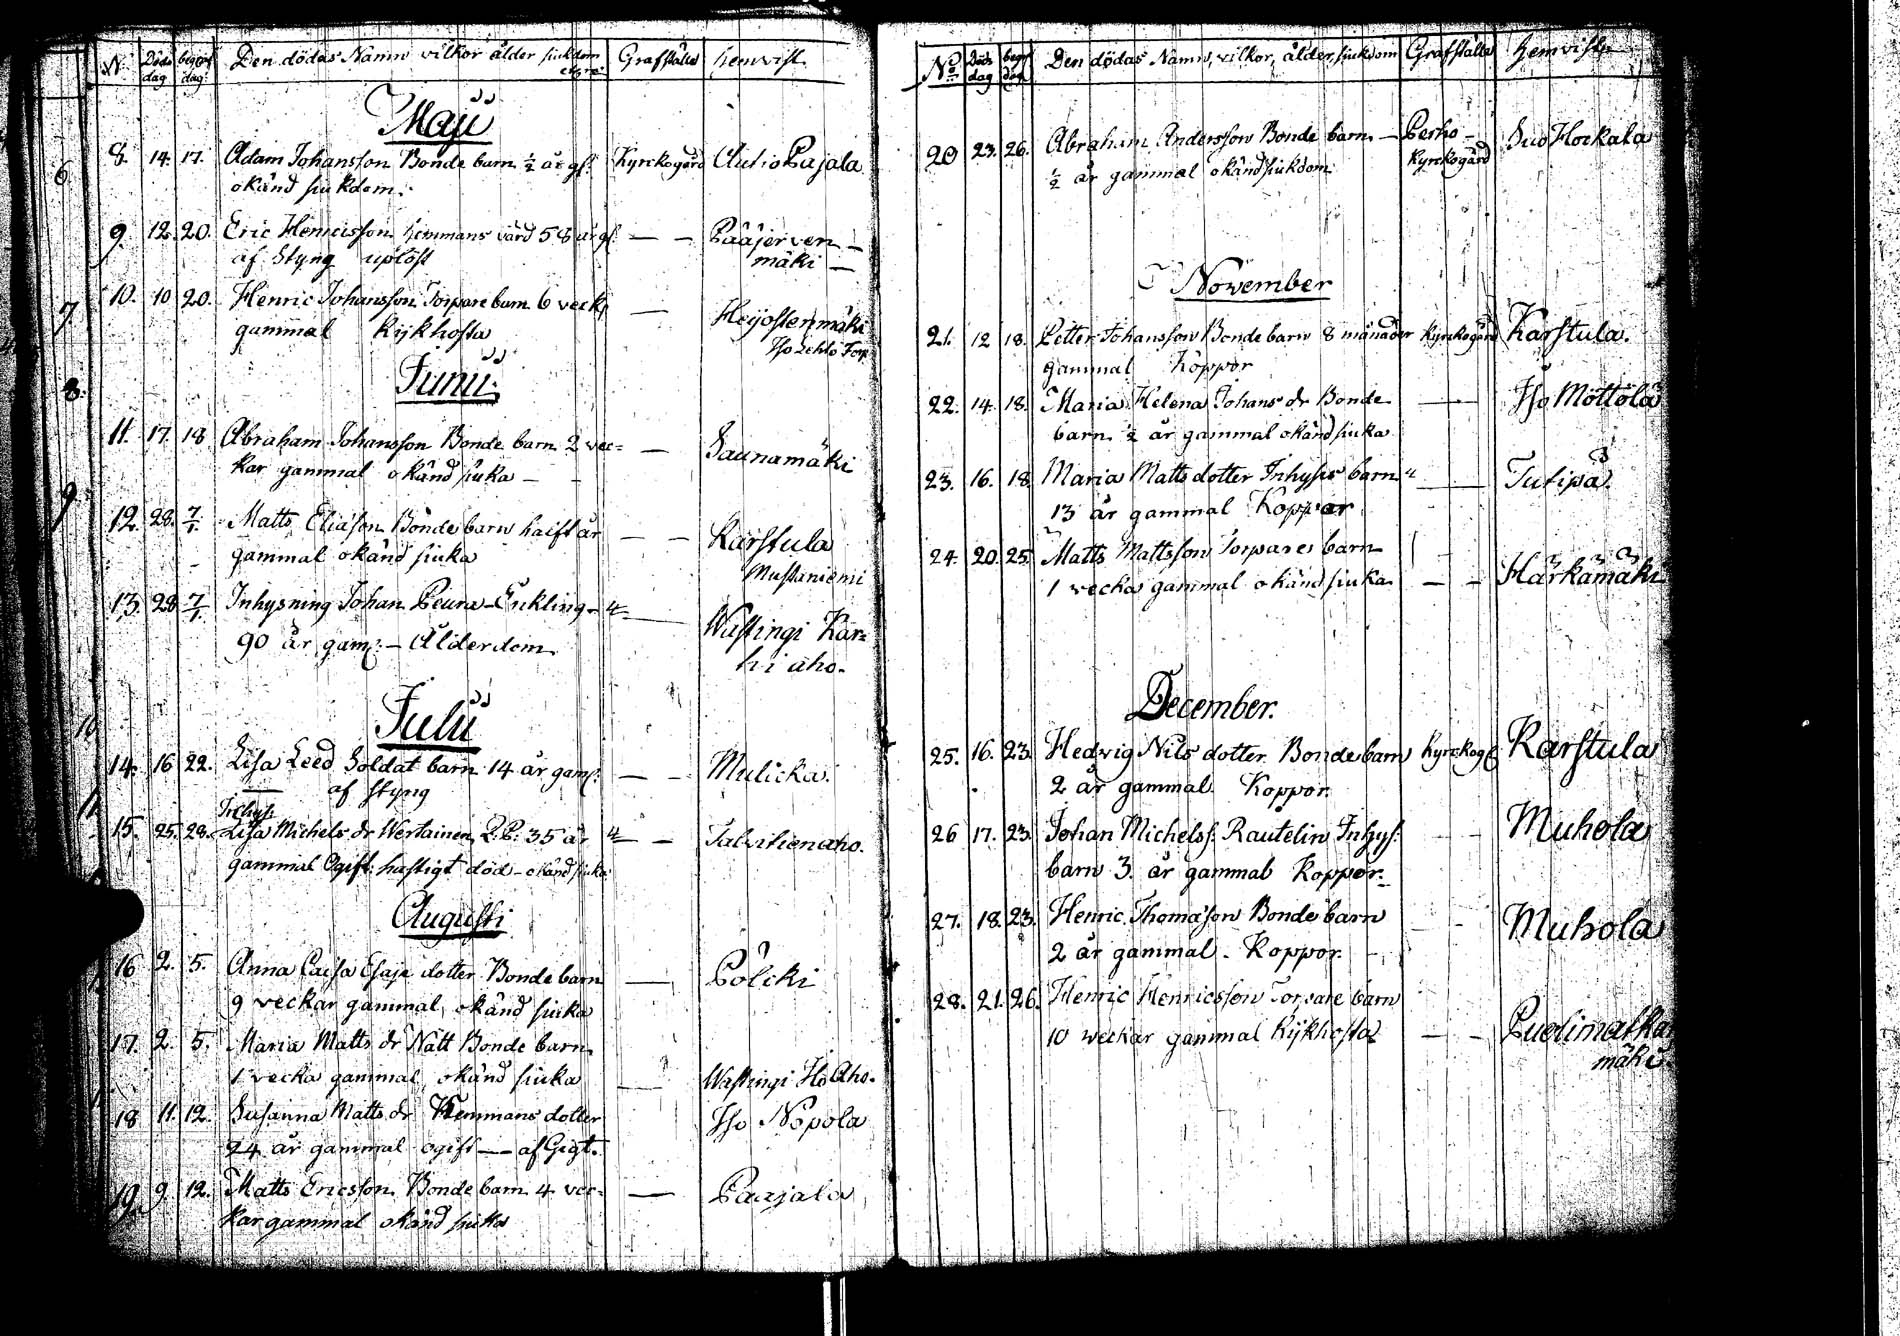 N. Döds dag begrf dag: Den dödas Namn vilkor ålder siukdom etc: Grafställe hemvist.
Maji
8. 14. 17. Adam Johansson Bonde barn ½ år gl: Kyrckogård Autio Pajala
okänd siukdom.
9. 12. 20. Eric Henricsson hemmans värd 58 år gl: — — Pääjerven —
af Styng uplöst mäki —
10. 10 20. Henric Johansson Torpare barn 6 veck: — Heijostenmäki
gammal Kijkhosta Iso Lehto Torp
Junii
11. 17. 18 Abraham Johansson Bonde barn 2 vec= — Saunamäki
kar gammal okänd siuka —
12. 28. 7/1 Matts Eliasson Bonde barn halft år — — Karstula
gammal okänd siuka Mustaniemi
13. 28 7/1 Inhysning Johan Peura — Enkling — — Wastingi Kar=
90 år gaml: — Ålderdom hi aho.
Julii
14. 16 22. Lisa Leed Soldat barn 14 år gaml: — — Mulicka.
af styng
Inhys:
15. 25. 28. Lisa Michels dr Wertainen 35 år — — Talvitienaho.
gammal Ogift: hastigt död — okänd siuka
Augusti
16 2. 5. Anna Caisa Esaje dotter Bonde barn — Pölcki
9 veckar gammal, okänd siuka
17. 2. 5. Maria Matts dr Nätt Bonde barn
1 vecka gammal, okänd siuka — Wastingi Aho.
18 11. 12. Susanna Matts dr Hemmans dotter Iso Nopola
24 år gammal ogift — af Gigt.
19. 9. 12. Matts Ericsson Bonde barn 4 vec= — Paajala
kar gammal okänd siuka
No Döds dag begr dag Den dödas Namn, vilkor, ålder, siukdom Grafställe hemvist
20 23. 26. Abraham Andersson Bonde barn — Perho — Suo Hockala
½ år gammal okänd siukdom Kyrckogård
November
21. 12 18. Petter Johansson Bonde barn 8 månader Kyrckogård Karstula.
gammal Koppor
22. 14. 18. Maria Helena Johans dr Bonde — Iso Möttölä
barn ½ år gammal okänd siuka
23. 16. 18 Maria Matts dotter Inhyses barn — Tulipä.
13 år gammal Koppor
24. 20. 25. Matts Mattsson Torpares barn
1 vecka gammal okänd siuka — — Härkämäki
December.
25. 16. 23. Hedvig Nils dotter Bonde barn Kyrckog: Karstula
2 år gammal Koppor.
26 17. 23. Johan Michelss: Rautelin Inhys: Muhola
barn 3. år gammal Koppor.
27. 18. 23. Henric Thomasson Bonde barn Muhola
2 år gammal. Koppor.
28. 21. 26. Henric Henricsson Torpare barn
10 weckar gammal Kijkhosta — — Puolimatka
mäki.